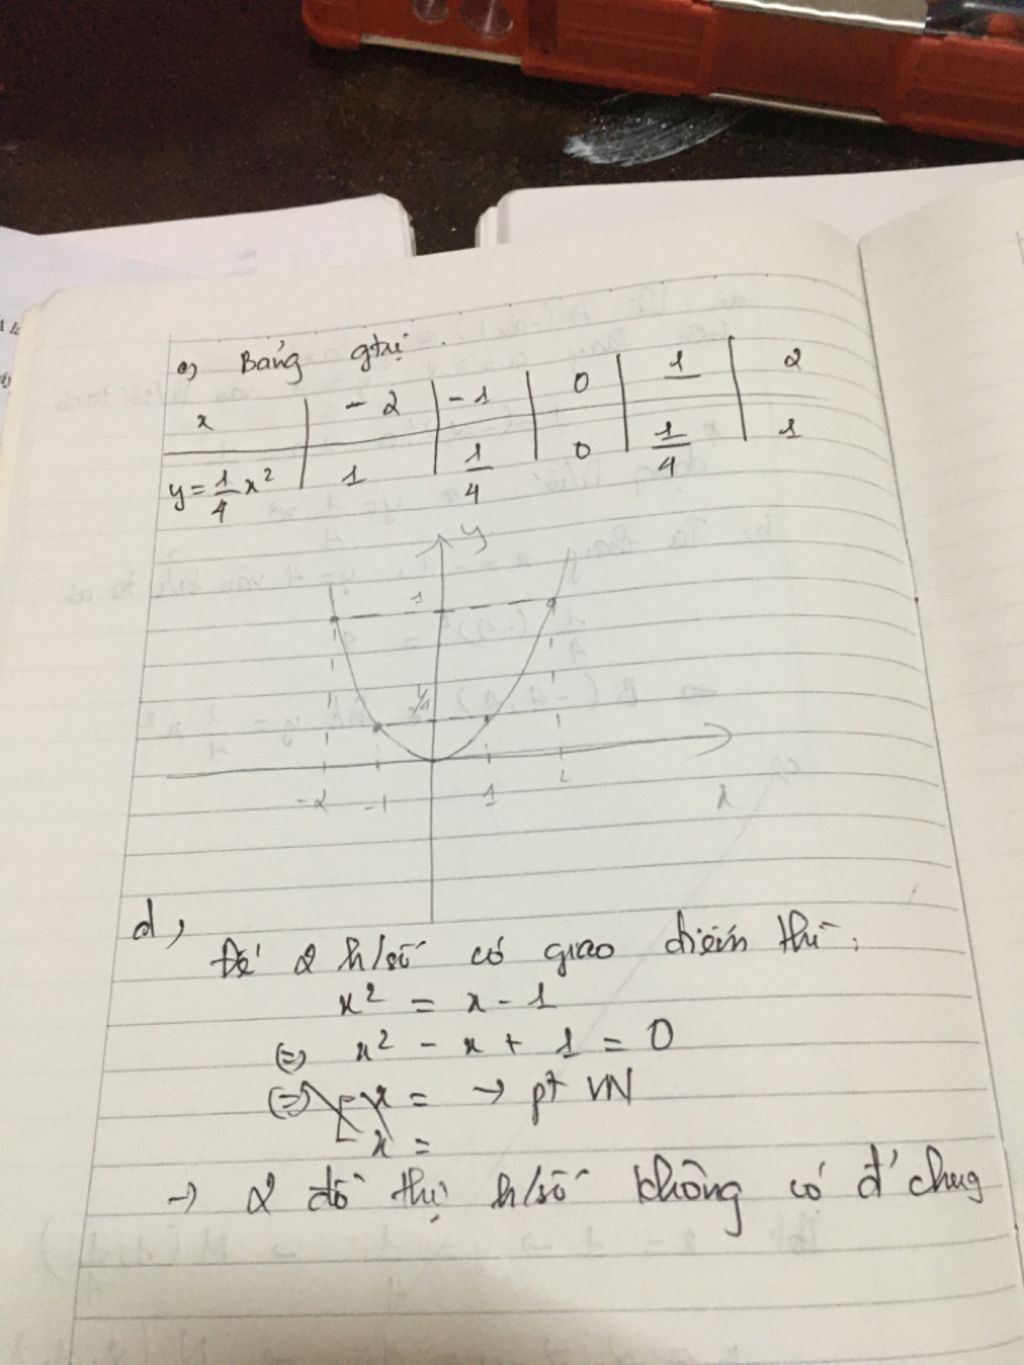 c) Bảng gtrị.
x | -2 | -1 | 0 | 1 | 2
y = 1/4 x² | 1 | 1/4 | 0 | 1/4 | 1
y
1
1/4
-2 -1 1 2
x
d,
Để 2 h/số có giao điểm thì:
x² = x - 1
(=) x² - x + 1 = 0
(=) x = → pt VN
x =
→ 2 đồ thị h/số không có đ' chug